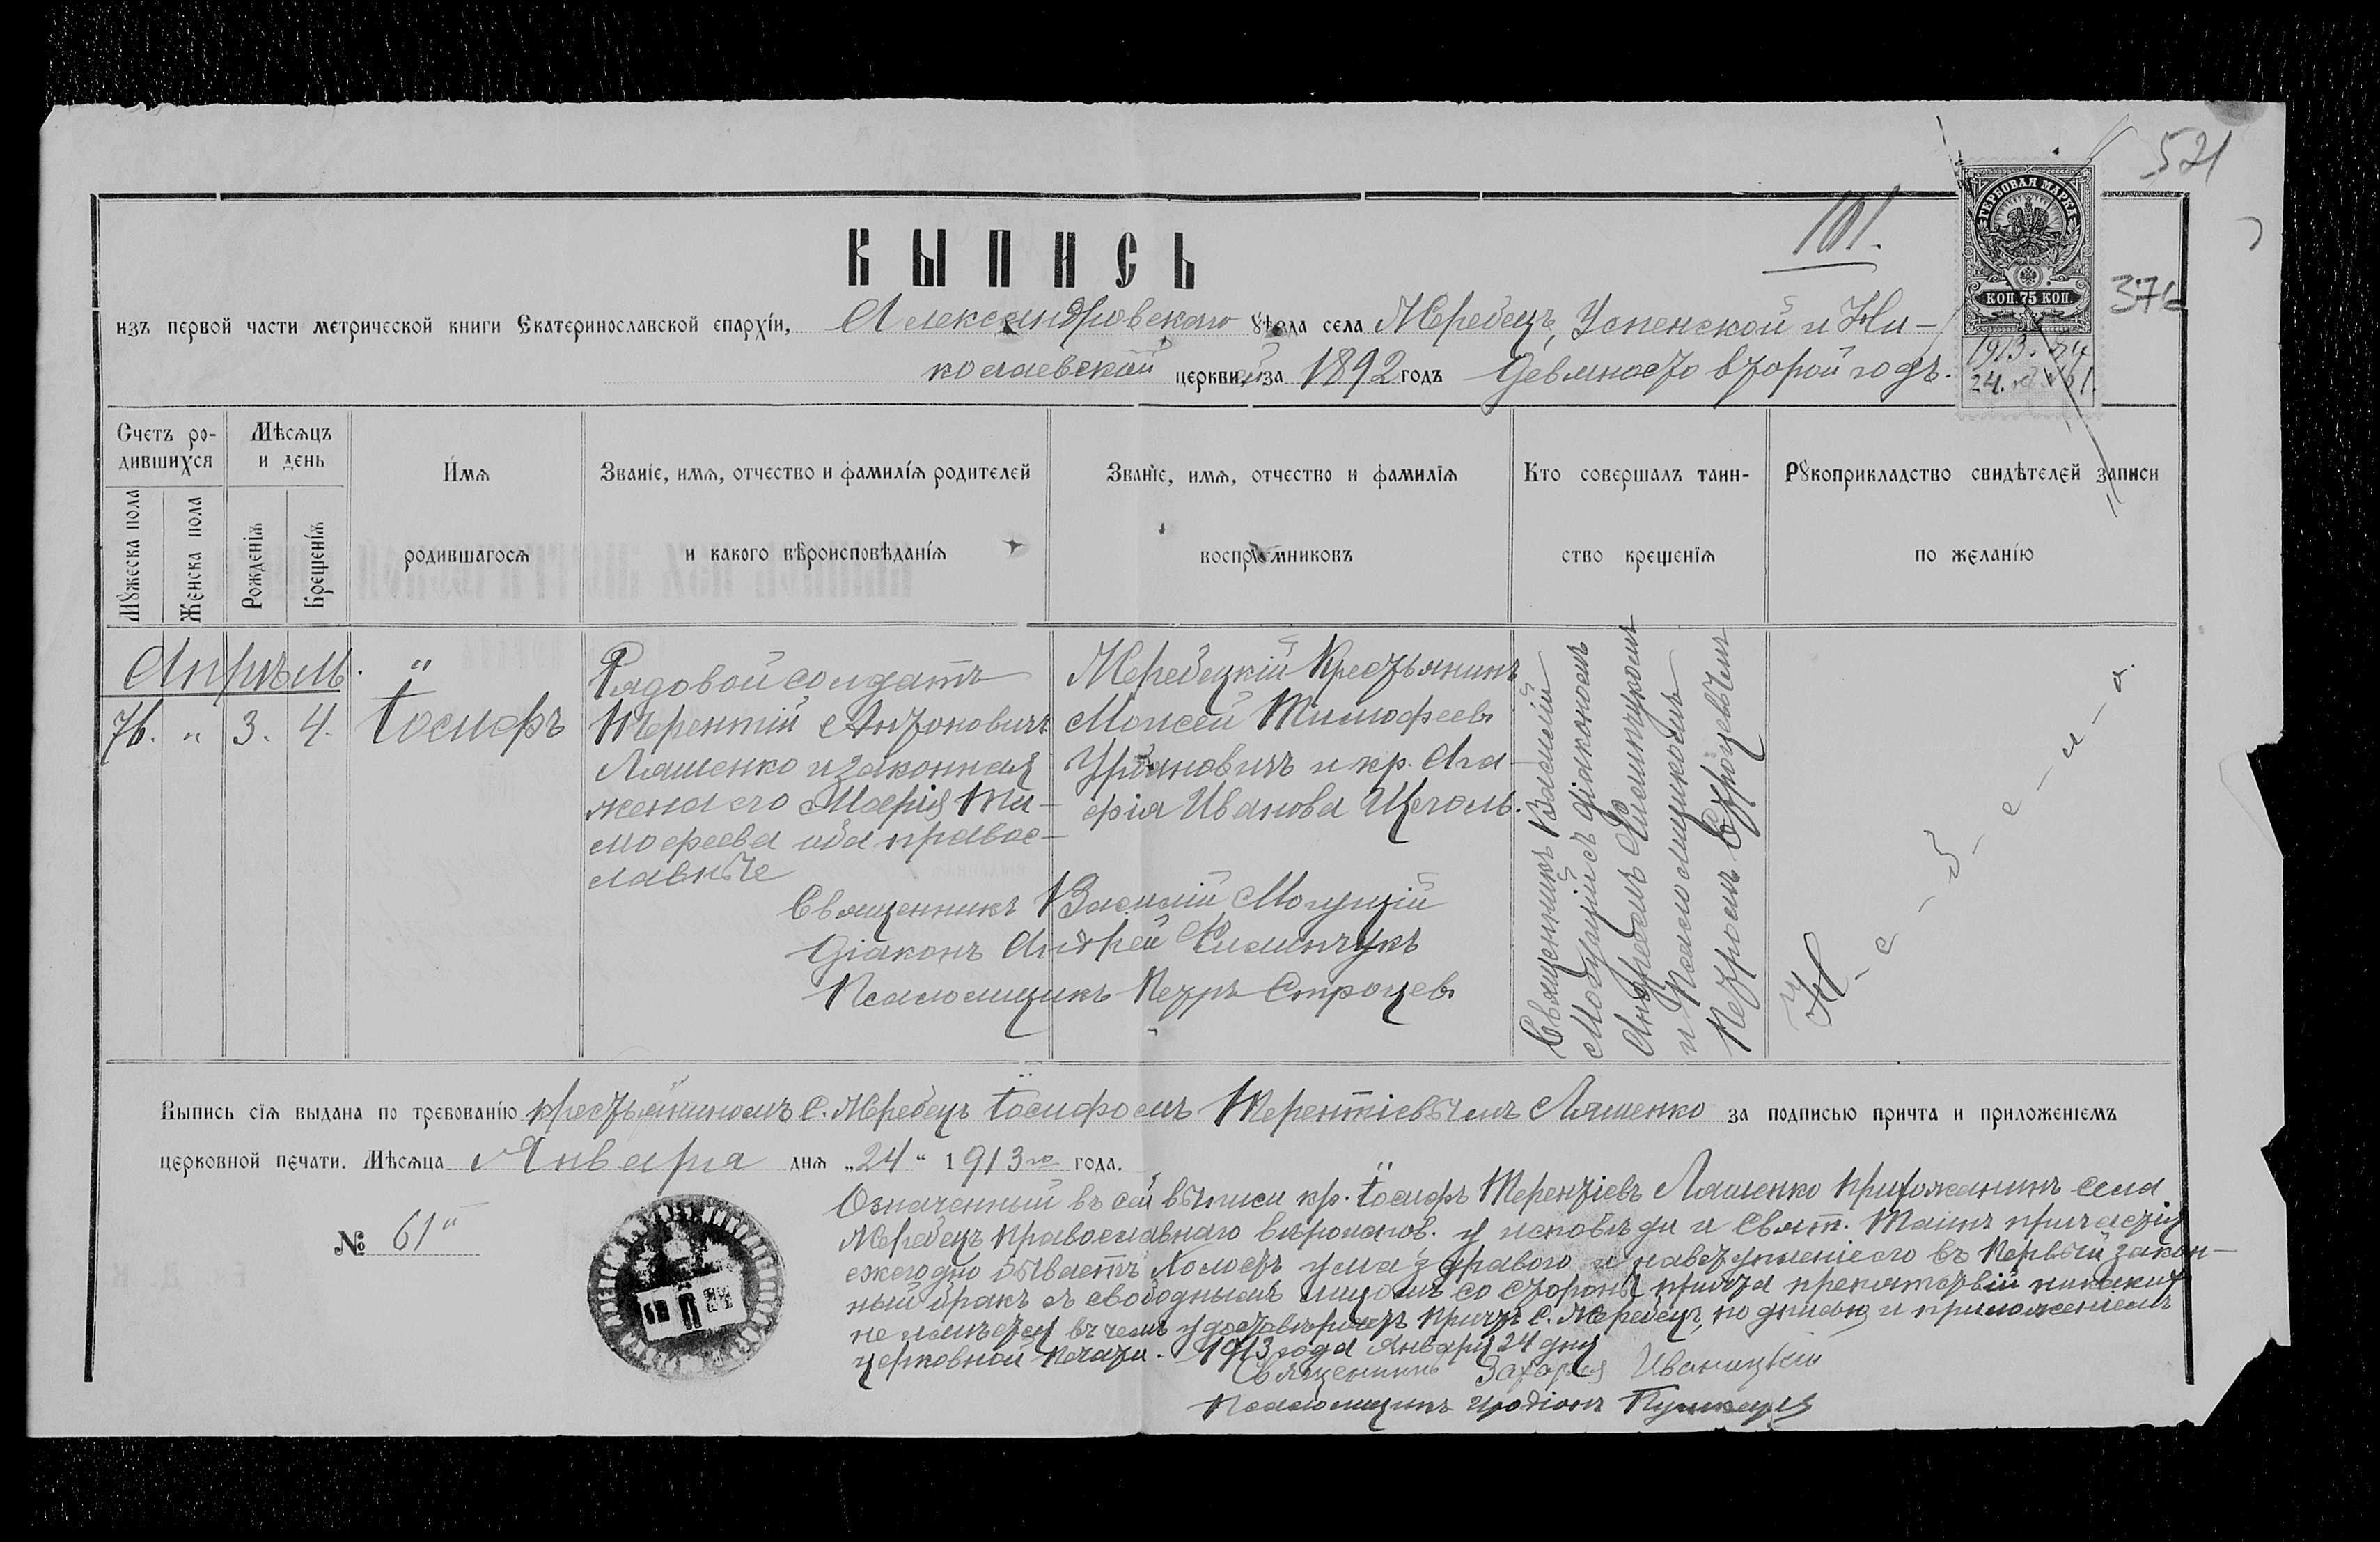 521
101.
ГЕРБОВАЯ МАРКА
КОП. 75 КОП.
376
ВЫПИСЬ
изъ первой части метрической книги Екатеринославской епархіи, Александровскаго уѣзда села Жеребецъ, Успенской и Ни-
колаевской церквей за 1892 годъ Девяносто второй годъ.
1913.
24.
61.
Счетъ ро-
дившихся
Мѣсяцъ
и день
Мужеска пола
Женска пола
Рожденія
Крещенія
Имя
родившагося
Званіе, имя, отчество и фамилія родителей
и какого вѣроисповѣданія
Званіе, имя, отчество и фамилія
воспріемниковъ
Кто совершалъ таин-
ство крещенія
Рукоприкладство свидѣтелей записи
по желанію
Апрѣль.
76. „ 3. 4. Іосифъ
Рядовой солдатъ
Терентій Антоновичъ
Ляшенко и законная
жена его Марія Ти-
мофеева оба правос-
лавные
Жеребецкій Крестьянинъ
Моисей Тимофеевъ
Урбановичъ и кр. Ага-
фія Иванова Щеголь.
Священникъ Василій
Могущій съ діакономъ
Андреемъ Климчукомъ
и Псаломщикомъ
Петромъ Строцевымъ
Священникъ Василій Могущій
Діаконъ Андрей Климчукъ
Псаломщикъ Петръ Строцевъ
Выпись сія выдана по требованію крестьяниномъ с. Жеребецъ Іосифомъ Терентіевымъ Ляшенко за подписью причта и приложеніемъ
церковной печати. Мѣсяца Января дня „24" 1913го года.
№ 61
Означенный въ сей выписи кр. Іосифъ Терентіевъ Ляшенко прихожанинъ села
Жеребецъ Православнаго вѣроиспов. у исповѣди и Свят. Таинъ причастія
ежегодно бываетъ Холостъ ума здраваго и на вступленіе его въ Первый закон-
ный бракъ съ свободнымъ лицомъ со стороны причта препятствій никакихъ
не имѣется въ чемъ удостовѣряетъ Причтъ с. Жеребецъ, подписью и приложеніемъ
церковной Печати. 1913 года Января 24 дня
Священникъ Захарія Иваницкій
Псаломщикъ Иродіонъ